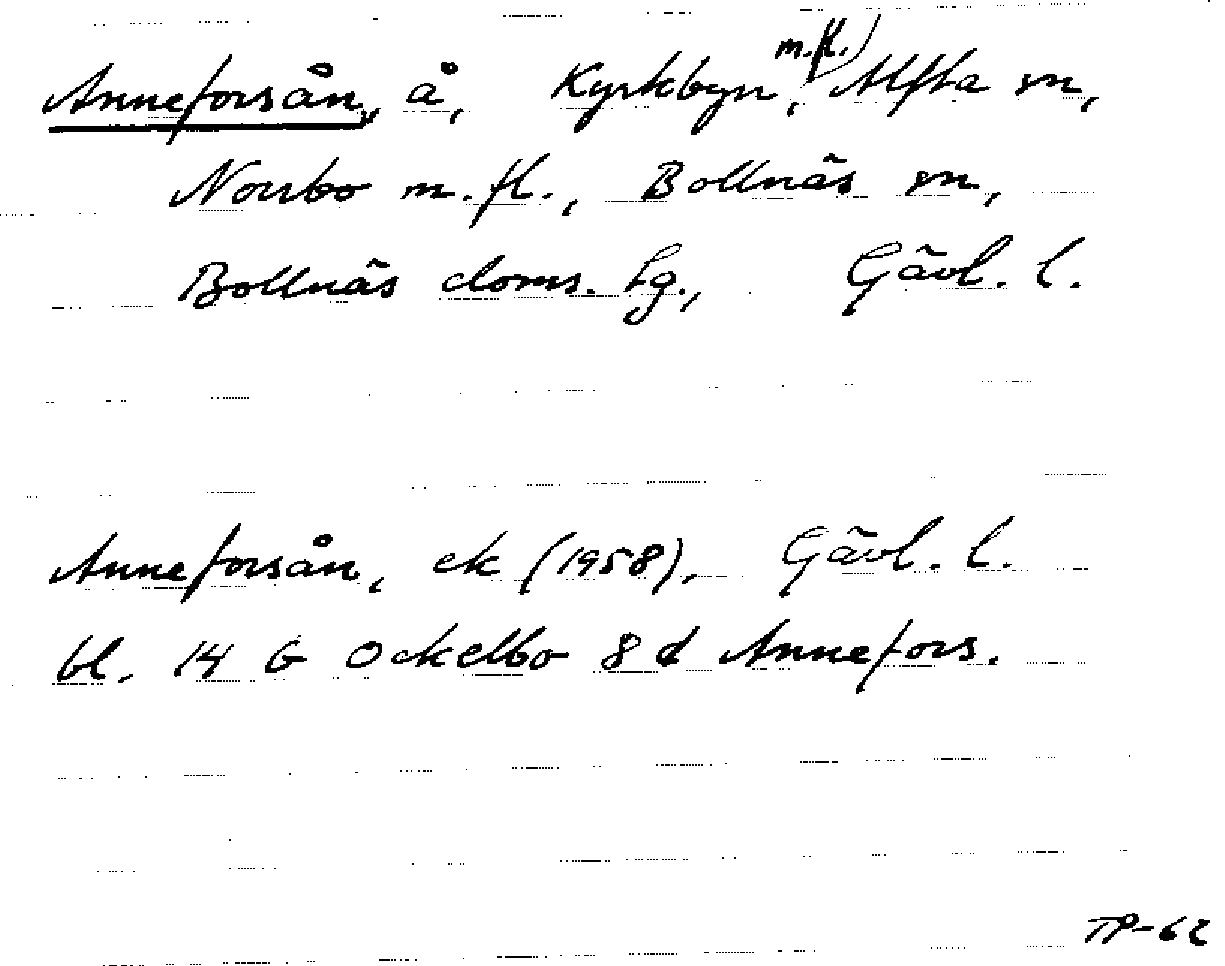 Anneforsån, å, Kyrkbyn m.fl., Alfta sn,
Norrbo m.fl., Bollnäs sn,
Bollnäs doms. hg., Gävl. l.
Anneforsån, ek (1958), Gävl. l.
bl. 14 G Ockelbo 8 d Annefors.
TP-62